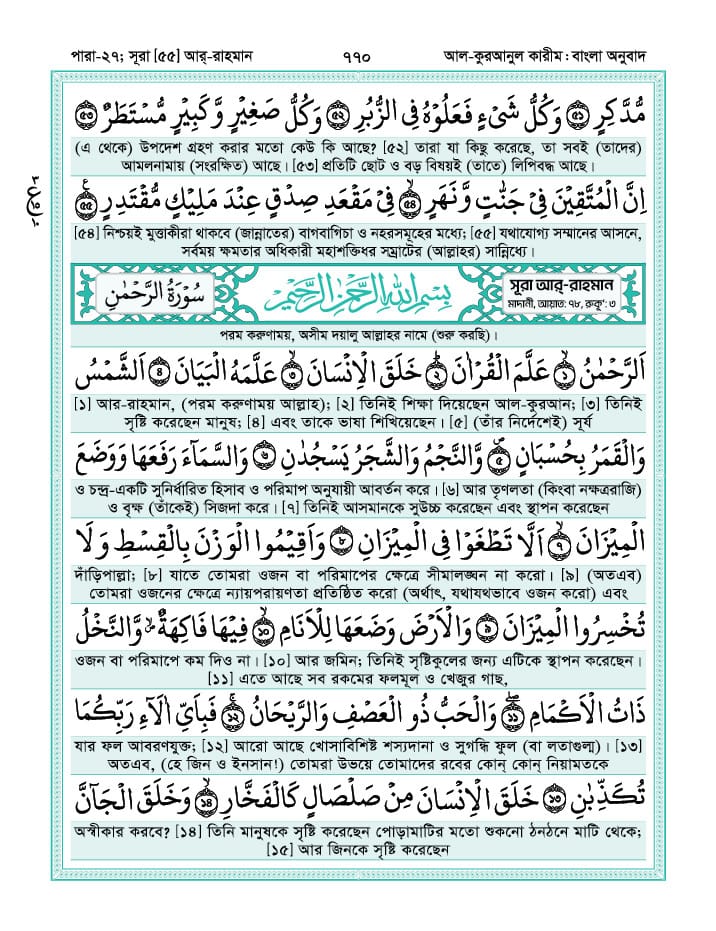 পারা-২৭; সূরা [৫৫] আর্-রাহমান ৭৭০ আল-কুরআনুল কারীম : বাংলা অনুবাদ
مُّدَّكِرٍ ۝۵۱ وَكُلُّ شَیْءٍ فَعَلُوْهُ فِی الزُّبُرِ ۝۵۲ وَكُلُّ صَغِیْرٍ وَّكَبِیْرٍ مُّسْتَطَرٌ ۝۵۳
(এ থেকে) উপদেশ গ্রহণ করার মতো কেউ কি আছে? [৫২] তারা যা কিছু করেছে, তা সবই (তাদের)
আমলনামায় (সংরক্ষিত) আছে। [৫৩] প্রতিটি ছোট ও বড় বিষয়ই (তাতে) লিপিবদ্ধ আছে।
اِنَّ الْمُتَّقِیْنَ فِیْ جَنّٰتٍ وَّنَهَرٍ ۝۵۴ فِیْ مَقْعَدِ صِدْقٍ عِنْدَ مَلِیْكٍ مُّقْتَدِرٍ ۝۵۵
[৫৪] নিশ্চয়ই মুত্তাকীরা থাকবে (জান্নাতের) বাগবাগিচা ও নহরসমূহের মধ্যে; [৫৫] যথাযোগ্য সম্মানের আসনে,
সর্বময় ক্ষমতার অধিকারী মহাশক্তিধর সম্রাটের (আল্লাহর) সান্নিধ্যে।
سُوْرَةُ الرَّحْمٰنِ
بِسْمِ اللهِ الرَّحْمٰنِ الرَّحِیْمِ
সূরা আর্-রাহমান
মাদানী, আয়াত: ৭৮, রুকূ': ৩
পরম করুণাময়, অসীম দয়ালু আল্লাহর নামে (শুরু করছি)।
اَلرَّحْمٰنُ ۝۱ عَلَّمَ الْقُرْاٰنَ ۝۲ خَلَقَ الْاِنْسَانَ ۝۳ عَلَّمَهُ الْبَیَانَ ۝۴ اَلشَّمْسُ
[১] আর-রাহমান, (পরম করুণাময় আল্লাহ); [২] তিনিই শিক্ষা দিয়েছেন আল-কুরআন; [৩] তিনিই
সৃষ্টি করেছেন মানুষ; [৪] এবং তাকে ভাষা শিখিয়েছেন। [৫] (তাঁর নির্দেশেই) সূর্য
وَالْقَمَرُ بِحُسْبَانٍ ۝۵ وَّالنَّجْمُ وَالشَّجَرُ یَسْجُدٰنِ ۝۶ وَالسَّمَآءَ رَفَعَهَا وَوَضَعَ
ও চন্দ্র-একটি সুনির্ধারিত হিসাব ও পরিমাপ অনুযায়ী আবর্তন করে। [৬] আর তৃণলতা (কিংবা নক্ষত্ররাজি)
ও বৃক্ষ (তাঁকেই) সিজদা করে। [৭] তিনিই আসমানকে সুউচ্চ করেছেন এবং স্থাপন করেছেন
الْمِیْزَانَ ۝۷ اَلَّا تَطْغَوْا فِی الْمِیْزَانِ ۝۸ وَاَقِیْمُوا الْوَزْنَ بِالْقِسْطِ وَلَا
দাঁড়িপাল্লা; [৮] যাতে তোমরা ওজন বা পরিমাপের ক্ষেত্রে সীমালঙ্ঘন না করো। [৯] (অতএব)
তোমরা ওজনের ক্ষেত্রে ন্যায়পরায়ণতা প্রতিষ্ঠিত করো (অর্থাৎ, যথাযথভাবে ওজন করো) এবং
تُخْسِرُوا الْمِیْزَانَ ۝۹ وَالْاَرْضَ وَضَعَهَا لِلْاَنَامِ ۝۱۰ فِیْهَا فَاكِهَةٌ وَّالنَّخْلُ
ওজন বা পরিমাপে কম দিও না। [১০] আর জমিন; তিনিই সৃষ্টিকুলের জন্য এটিকে স্থাপন করেছেন।
[১১] এতে আছে সব রকমের ফলমূল ও খেজুর গাছ,
ذَاتُ الْاَكْمَامِ ۝۱۱ وَالْحَبُّ ذُو الْعَصْفِ وَالرَّیْحَانُ ۝۱۲ فَبِاَیِّ اٰلَآءِ رَبِّكُمَا
যার ফল আবরণযুক্ত; [১২] আরো আছে খোসাবিশিষ্ট শস্যদানা ও সুগন্ধি ফুল (বা লতাগুল্ম)। [১৩]
অতএব, (হে জিন ও ইনসান!) তোমরা উভয়ে তোমাদের রবের কোন্ কোন্ নিয়ামতকে
تُكَذِّبٰنِ ۝۱۳ خَلَقَ الْاِنْسَانَ مِنْ صَلْصَالٍ كَالْفَخَّارِ ۝۱۴ وَخَلَقَ الْجَآنَّ
অস্বীকার করবে? [১৪] তিনি মানুষকে সৃষ্টি করেছেন পোড়ামাটির মতো শুকনো ঠনঠনে মাটি থেকে;
[১৫] আর জিনকে সৃষ্টি করেছেন